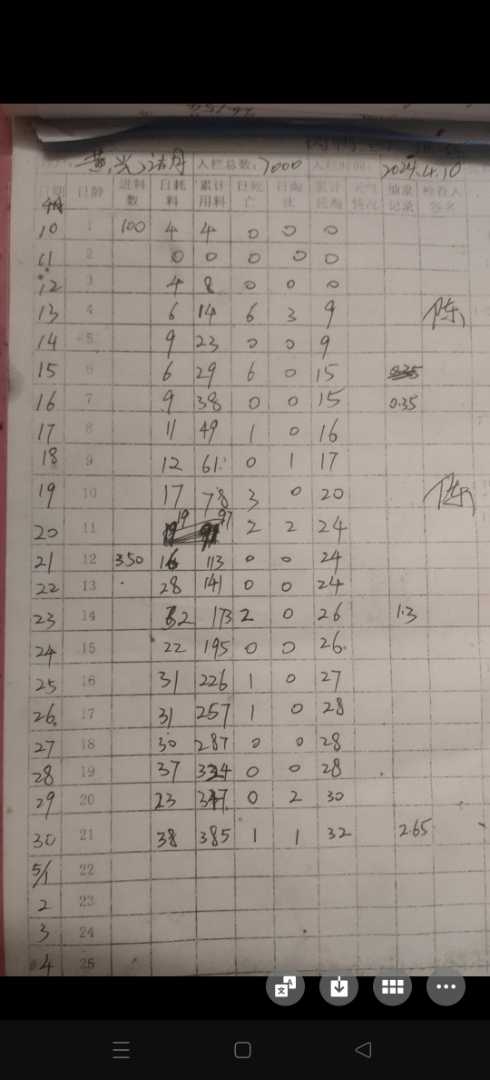 入栏总数: 7000 入栏时间: 2024.4.10
日期 日龄 进料数 日耗料 累计用料 日死亡 日淘汰 累计死淘 天气情况 抽重记录 检查人签名
10 1 100 4 4 0 0 0
11 2 0 0 0 0 0
12 3 4 8 0 0 0
13 4 6 14 6 3 9 陈
14 5 9 23 0 0 9
15 6 6 29 6 0 15
16 7 9 38 0 0 15 0.35
17 8 11 49 1 0 16
18 9 12 61 0 1 17
19 10 17 78 3 0 20 陈
20 11 19 97 2 2 24
21 12 350 16 113 0 0 24
22 13 28 141 0 0 24
23 14 32 173 2 0 26 1.3
24 15 22 195 0 0 26
25 16 31 226 1 0 27
26 17 31 257 1 0 28
27 18 30 287 0 0 28
28 19 37 324 0 0 28
29 20 23 347 0 2 30
30 21 38 385 1 1 32 2.65
5/1 22
2 23
3 24
4 25